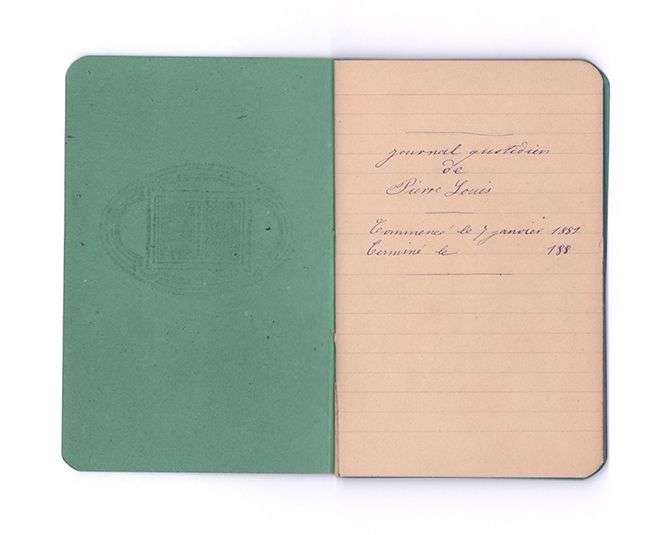 journal quotidien
de
Pierre Louis
Commencé le 7 janvier 1882
Terminé le 188